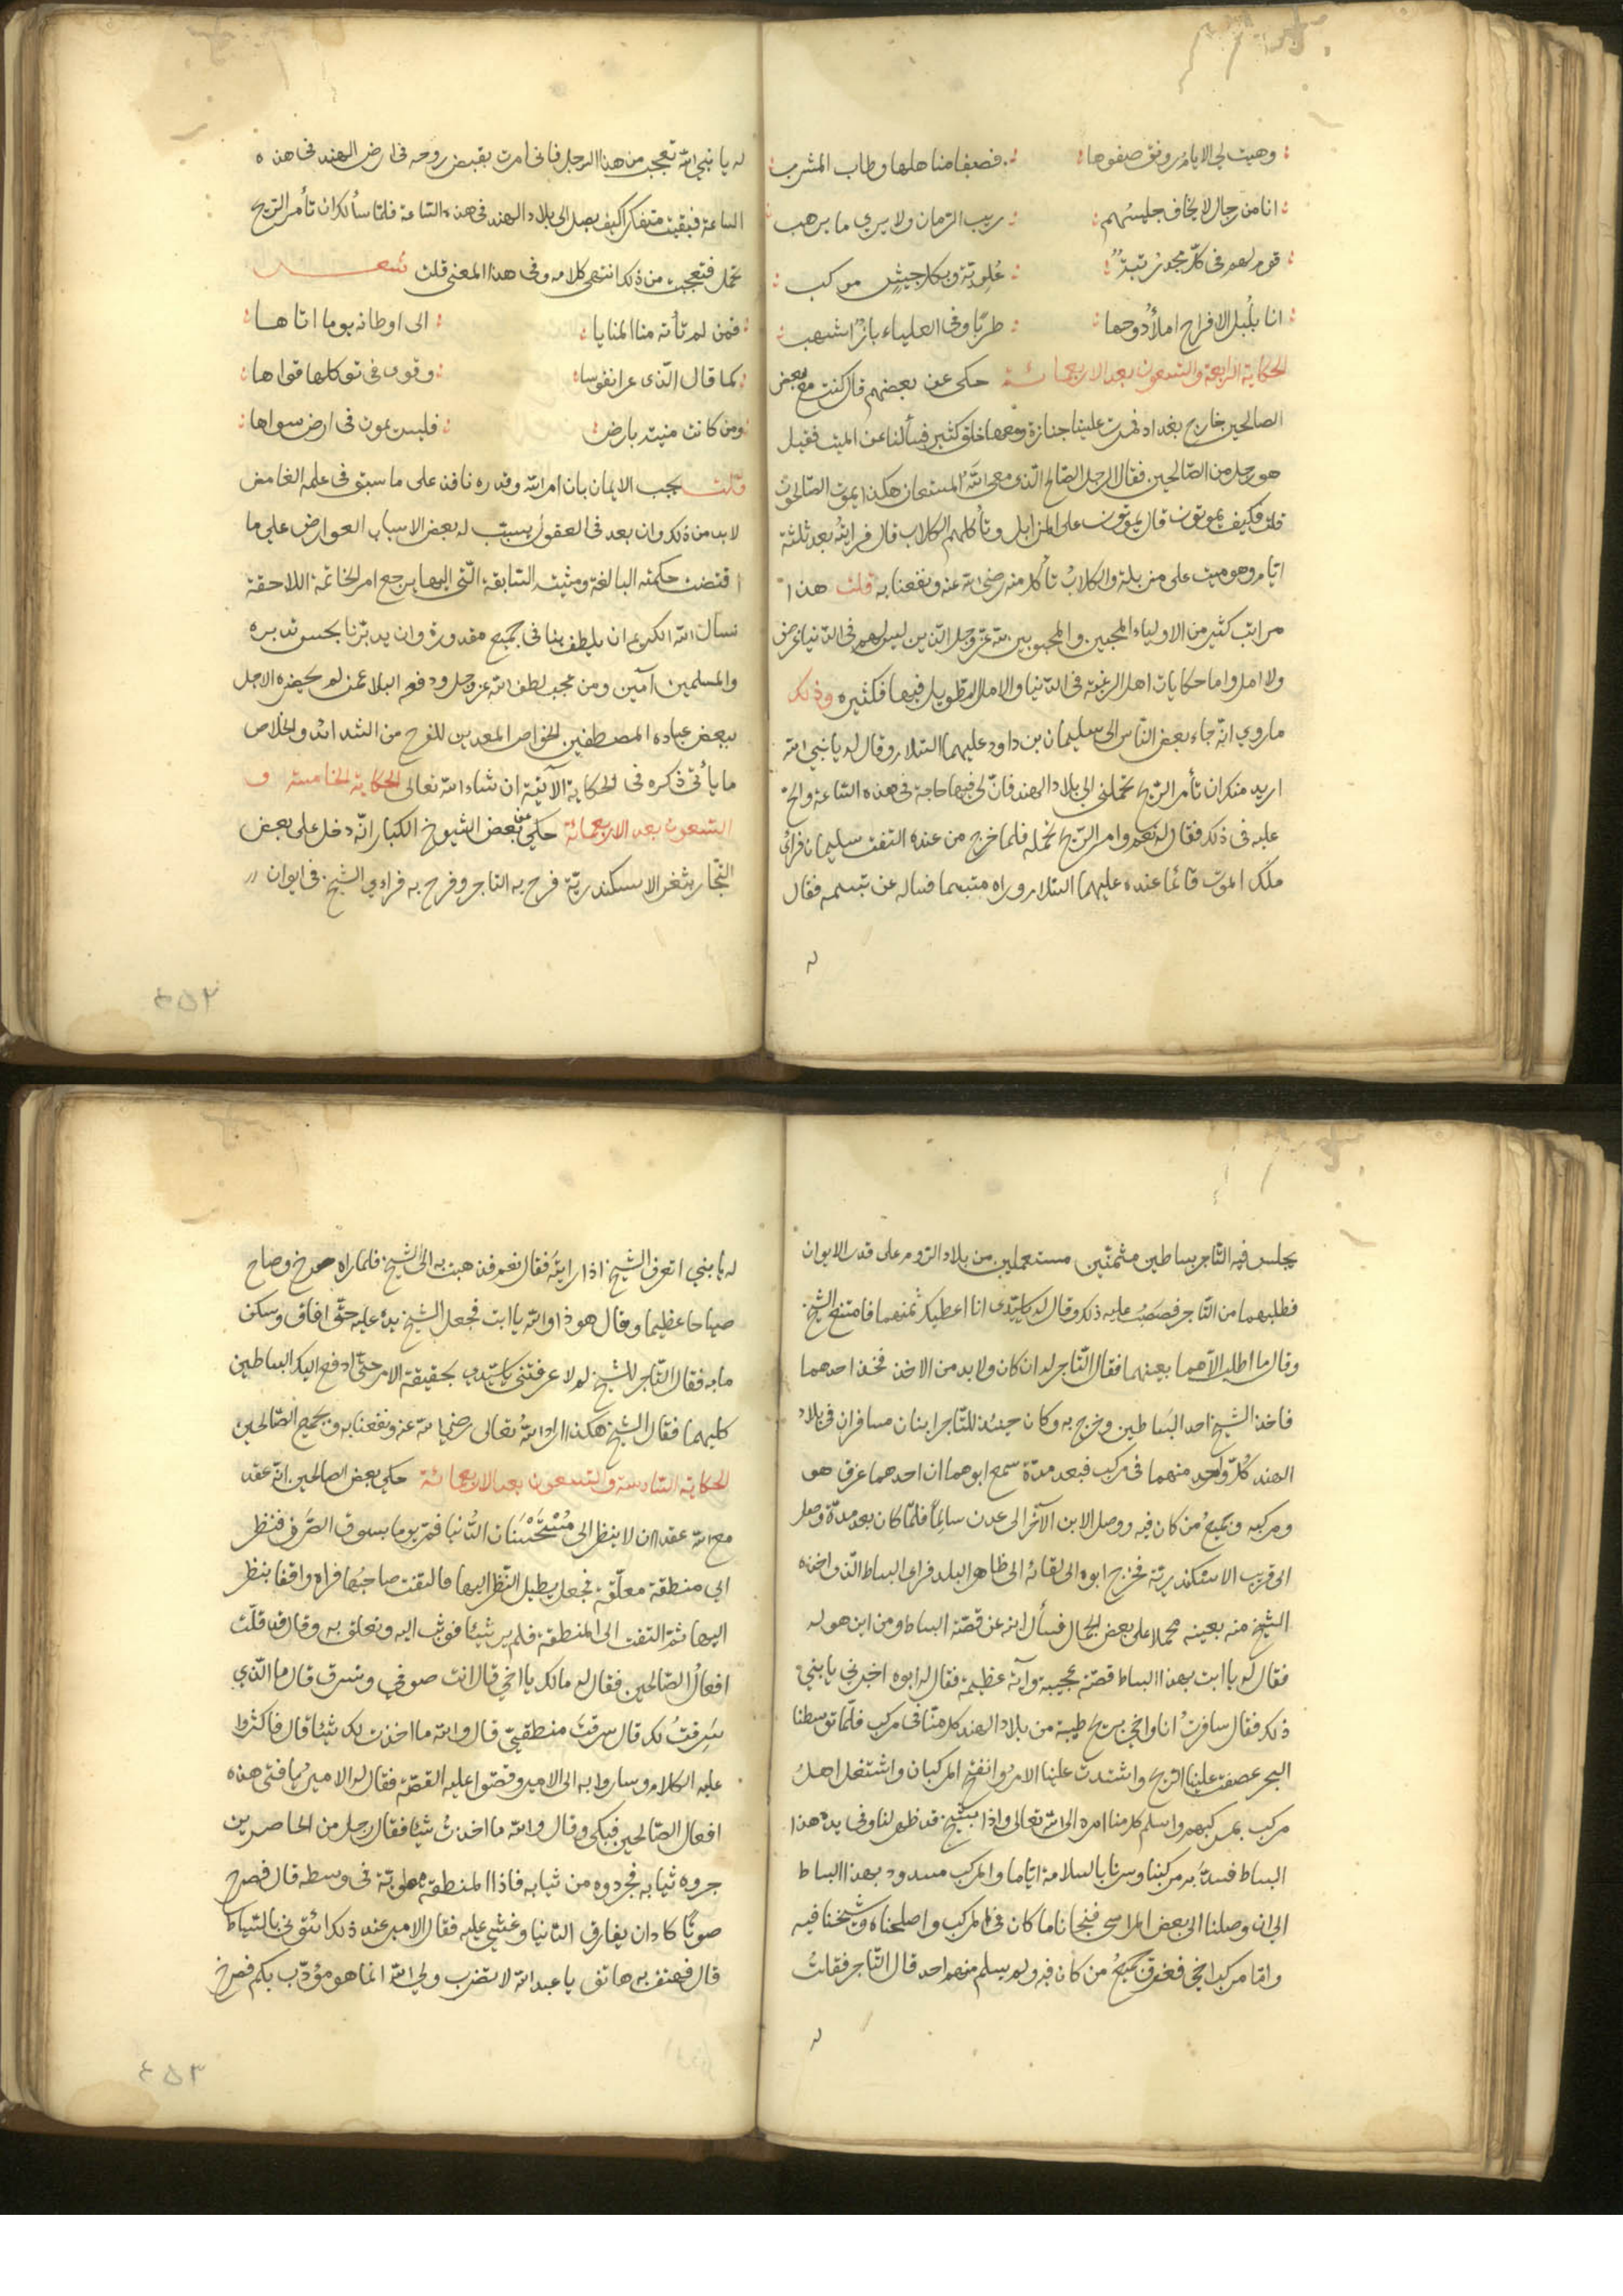 وهبت لي الايام رونق صفوها فصفا مناهلها وطاب المشرب
انا من رجال لا يخاف جليسهم ريب الزمان ولا يري ما يرهب
قوم لهم في كل مجد رتبة علوية وبكل جيش موكب
انا بلبل الافراح املأ دوحها طربا وفي العلياء باز اشهب
الحكاية الرابعة والتسعون بعد الاربعمائة حكى عن بعضهم قال كنت مع بعض
الصالحين خارج بغداد فمرت علينا جنازة ومعها خلق كثير فسألنا عن الميت فقيل
هو رجل من الصالحين فقال الرجل الصالح الذى معي الله المستعان هكذا يموت الصالحون
قلت فكيف يموتون قال يموتون على المزابل وتأكلهم الكلاب قال فرايته بعد ثلثة
ايام وهو ميت على مزبلة والكلاب تأكل منه رضى الله عنه ونفعنا به قلت هذا
مراتب كثير من الاولياء المحبين والمحبوبين لله عز وجل الذين ليس لهم فى الدنيا غرض
ولا امل واما حكايات اهل الرغبة فى الدنيا والامل الطويل فيها فكثيره وذلك
ما روي انه جاء بعض الناس الى سليمان بن داود عليهما السلام وقال له يا نبي الله
اريد منك ان تأمر الريح تحملني الى بلاد الهند فان لى فيها حاجة فى هذه الساعة والح
عليه فى ذلك فقال له نعم وامر الريح تحمله فلما خرج من عنده التفت سليمان فراى
ملك الموت قائما عنده عليهما السلام وراه متبسما فساله عن تبسمه فقال
له
له يا نبي الله تعجبت من هذا الرجل فانى امرت بقبض روحه فى ارض الهند فى هذه
الساعة فبقيت متفكرا كيف يصل الى بلاد الهند فى هذه الساعة فلما سألك ان تأمر الريح
تحمله فتعجبت من ذلك انتهى كلامه وفى هذا المعنى قلت شعر
فمن لم تأته منا المنايا الى اوطانه يوما اتاها
كما قال الذى عزا نفوسا وقوى فى توكلها قواها
ومن كانت منيته بارض فليس يموت فى ارض سواها
قلت يجب الايمان بان امر الله وقدره نافذ على ما سبق فى علمه الغامض
لا بد من ذلك وان بعد فى العقول يسبب له بعض الاسباب العوارض على ما
اقتضت حكمته البالغة ومشيته السابقة التي اليها يرجع امر الخاتمة اللاحقة
نسأل الله الكريم ان يلطف بنا فى جميع مقدوره وان يدبرنا بحسن تدبيره
والمسلمين آمين ومن عجيب لطف الله عز وجل ودفع البلا عمن لم يحضره الاجل
ببعض عباده المصطفين الخواص المعدين للفرج من الشدائد والخلاص
ما يأتى ذكره فى الحكاية الآتية ان شاء الله تعالى الحكاية الخامسة و
التسعون بعد الاربعمائة حكي عن بعض الشيوخ الكبار انه دخل على بعض
التجار بثغر الاسكندرية فرح به التاجر وفرح به فراى الشيخ فى ايوان
٤٥٢
يجلس فيه التاجر بساطين مثمنين مستعملين من بلاد الروم على قدر الايوان
فطلبهما من التاجر فصعب عليه ذلك وقال له يا سيدى انا اعطيك ثمنهما فامتنع الشيخ
وقال ما اطلب الا هما بعينهما فقال التاجر له ان كان ولا بد من الاخذ فخذ احدهما
فاخذ الشيخ احد البساطين وخرج به وكان حينئذ للتاجر ابنان مسافران فى بلاد
الهند كل واحد منهما فى مركب فبعد مدة سمع ابوهما ان احدهما غرق هو
ومركبه وجميع من كان فيه ووصل الابن الآخر الى عدن سالما فلما كان بعد مدة وصل
الى قريب الاسكندرية فخرج ابوه الى لقائه الى ظاهر البلد فراى البساط الذى اخذه
الشيخ منه بعينه محملا على بعض الجمال فسأل ابنه عن قصة البساط ومن اين هو له
فقال له يا ابت لهذا البساط قصة عجيبة وآية عظيمة فقال له ابوه اخبرني يا بني
ذلك فقال سافرت انا واخي بريح طيبة من بلاد الهند كل منا فى مركب فلما توسطنا
البحر عصفت علينا الريح واشتدت علينا الامر وانفتح المركبان واشتغل اهل
مركب بمركبهم واسلم كل منا امره الى الله تعالى واذا بشيخ قد ظهر لنا وفى يده هذا
البساط فسد به مركبنا وسرنا بالسلامة اياما والمركب مسدود بهذا البساط
الى ان وصلنا الى بعض المراسى فنجلنا ما كان فى المركب واصلحناه وشحنا فيه
واما مركب اخي فغرق جميع من كان فيه ولم يسلم منهم احد قال التاجر فقلت
له
له يا بني اتعرف الشيخ اذا رايته فقال نعم فذهبت به الى الشيخ فلما راه صرخ وصاح
صياحا عظيما وقال هو ذا والله يا ابت فجعل الشيخ يده عليه حتى افاق وسكن
ما به فقال التاجر للشيخ لم لا عرفتني يا سيدي بحقيقة الامر حتى ادفع اليك البساطين
كليهما فقال الشيخ هكذا اراد الله تعالى رضي الله عنه ونفعنا به وبجميع الصالحين
الحكاية السادسة والتسعون بعد الاربعمائة حكي بعض الصالحين انه عقد
مع الله عقدا ان لا ينظر الى مستحسنات الدنيا فمر يوما بسوق الصرف فنظر
الى منطقة معلقة فجعل يطيل النظر اليها فالتفت صاحبها فراه واقفا ينظر
اليها ثم التفت الى المنطقة فلم ير شيئا فوثب اليه وتعلق به وقال
افعال الصالحين فقال له مالك يا اخي قال انت صوفي وتسرق قال ما الذي
سرقت لك قال سرقت منطقتي قال والله ما اخذت لك شيئا قال فاكثروا
عليه الكلام وساروا به الى الامير وقصوا عليه القصة فقال له الامير يا فتى هذه
افعال الصالحين فبكى وقال والله ما اخذت شيئا فقال رجل من الحاضرين
جروه ثيابه فجردوه من ثيابه فاذا المنطقة مطوية فى وسطه قال فصرخ
صوتا كاد ان يفارق الدنيا وغشي عليه فقال الامير عند ذلك ائتوني بالسياط
قال فهتف به هاتف يا عبد الله لا تضرب ولي الله انما هو مؤدب بكم فصرخ
٤٥٣